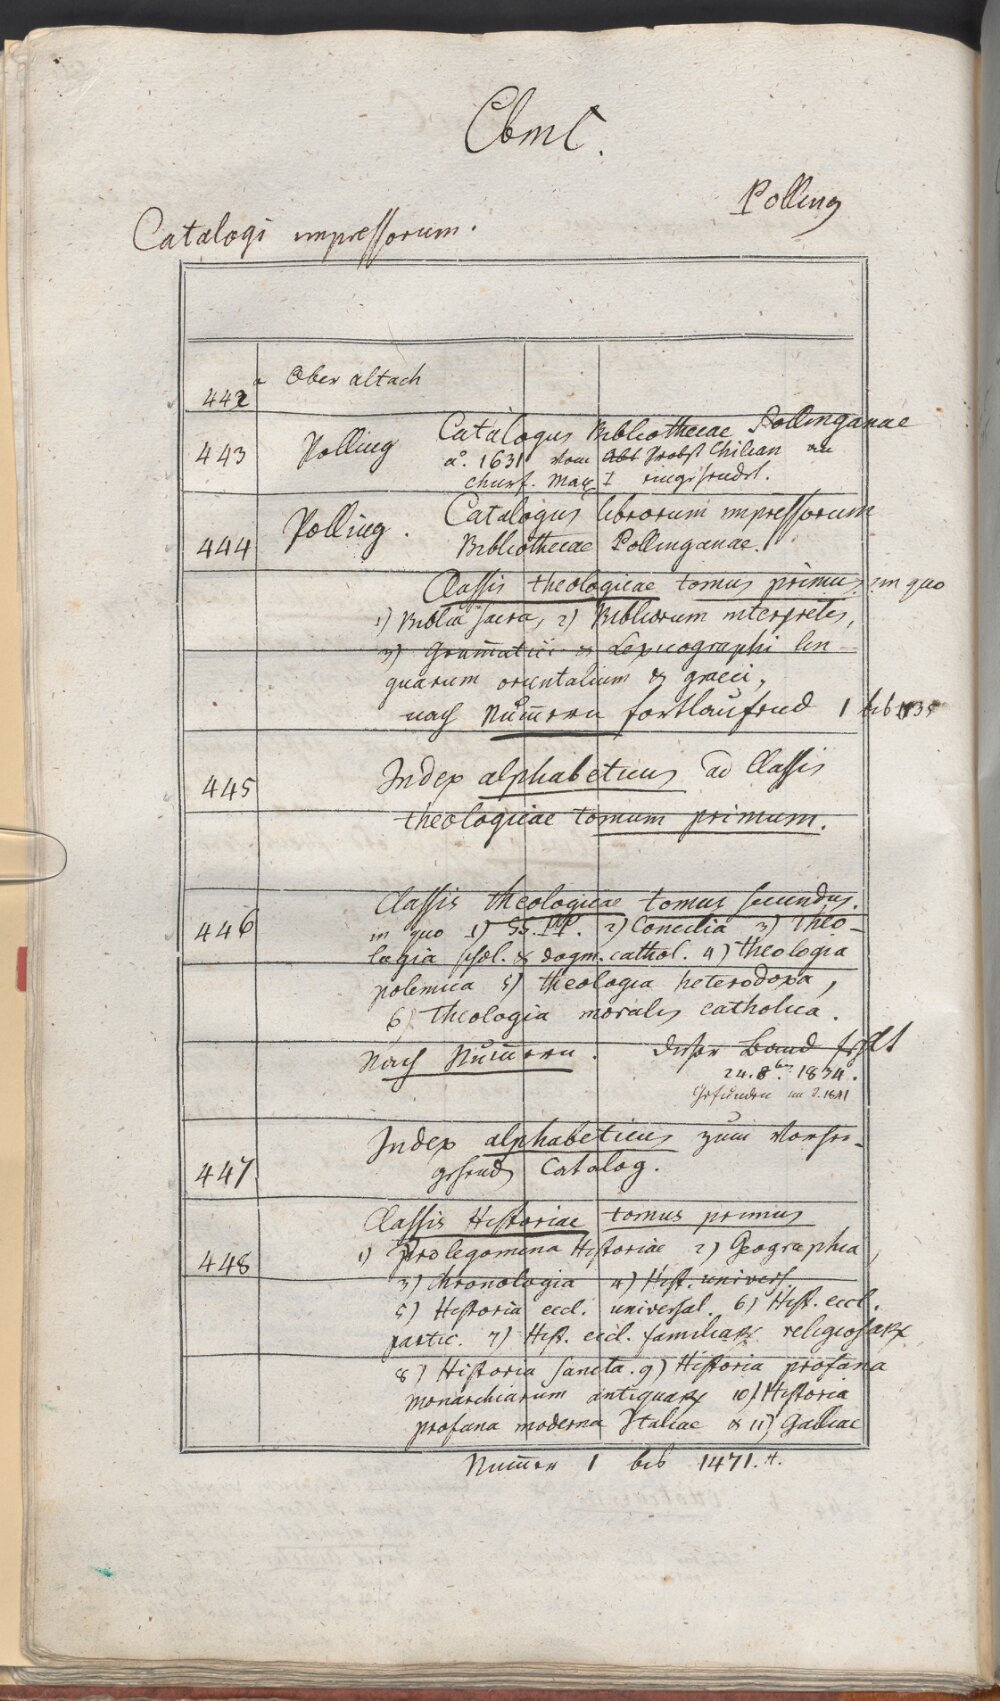 CbmC.
Polling
Catalogi impressorum.
442 a Ober altach
443 Polling Catalogus Bibliothecae Pollinganae
aº. 1631 vom Abt Probst Chilian an
churf. Max I eingesendet.
444 Polling. Catalogus librorum impressorum
Bibliothecae Pollinganae.
Classis theologicae tomus primus in quo
1) Biblia sacra, 2) Bibliorum interpretes,
3) Grammatici & Lexicographi lin
guarum orientalium & graeci,
nach Nummern fortlaufend 1 bis
445 Index alphabeticus ad Classis
theologicae tomum primum.
Classis theologicae tomus secundus.
446 in quo 1) SS. PP. 2) Concilia 3) Theo-
logia schol. & dogm. cathol. 4) theologia
polemica 5) theologia heterodoxa,
6) Theologia moralis catholica.
Nach Nummern. dieser Band fehlt
24. 8ber 1834.
Gefunden im J. 1841
Index alphabeticus zum vorher-
447. gehend Catalog.
Classis Historiae tomus primus
448 1) Prolegomena Historiae 2) Geographia,
3) chronologia 4) Hist. univers.
5) Historia eccl. universal. 6) Hist. eccl.
partic. 7) Hist. eccl. familiarꝝ religiosarꝝ
8) Historia sancta. 9) Historia profana
monarchiarum antiquarꝝ 10) Historia
profana moderna Italiae & 11) Galliae
Nummer 1 bis 1471.